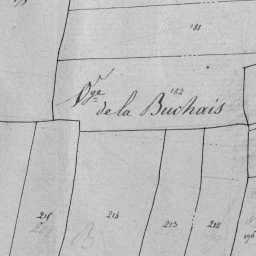 181
182
Vge
de la Buchais
215
214
213
212